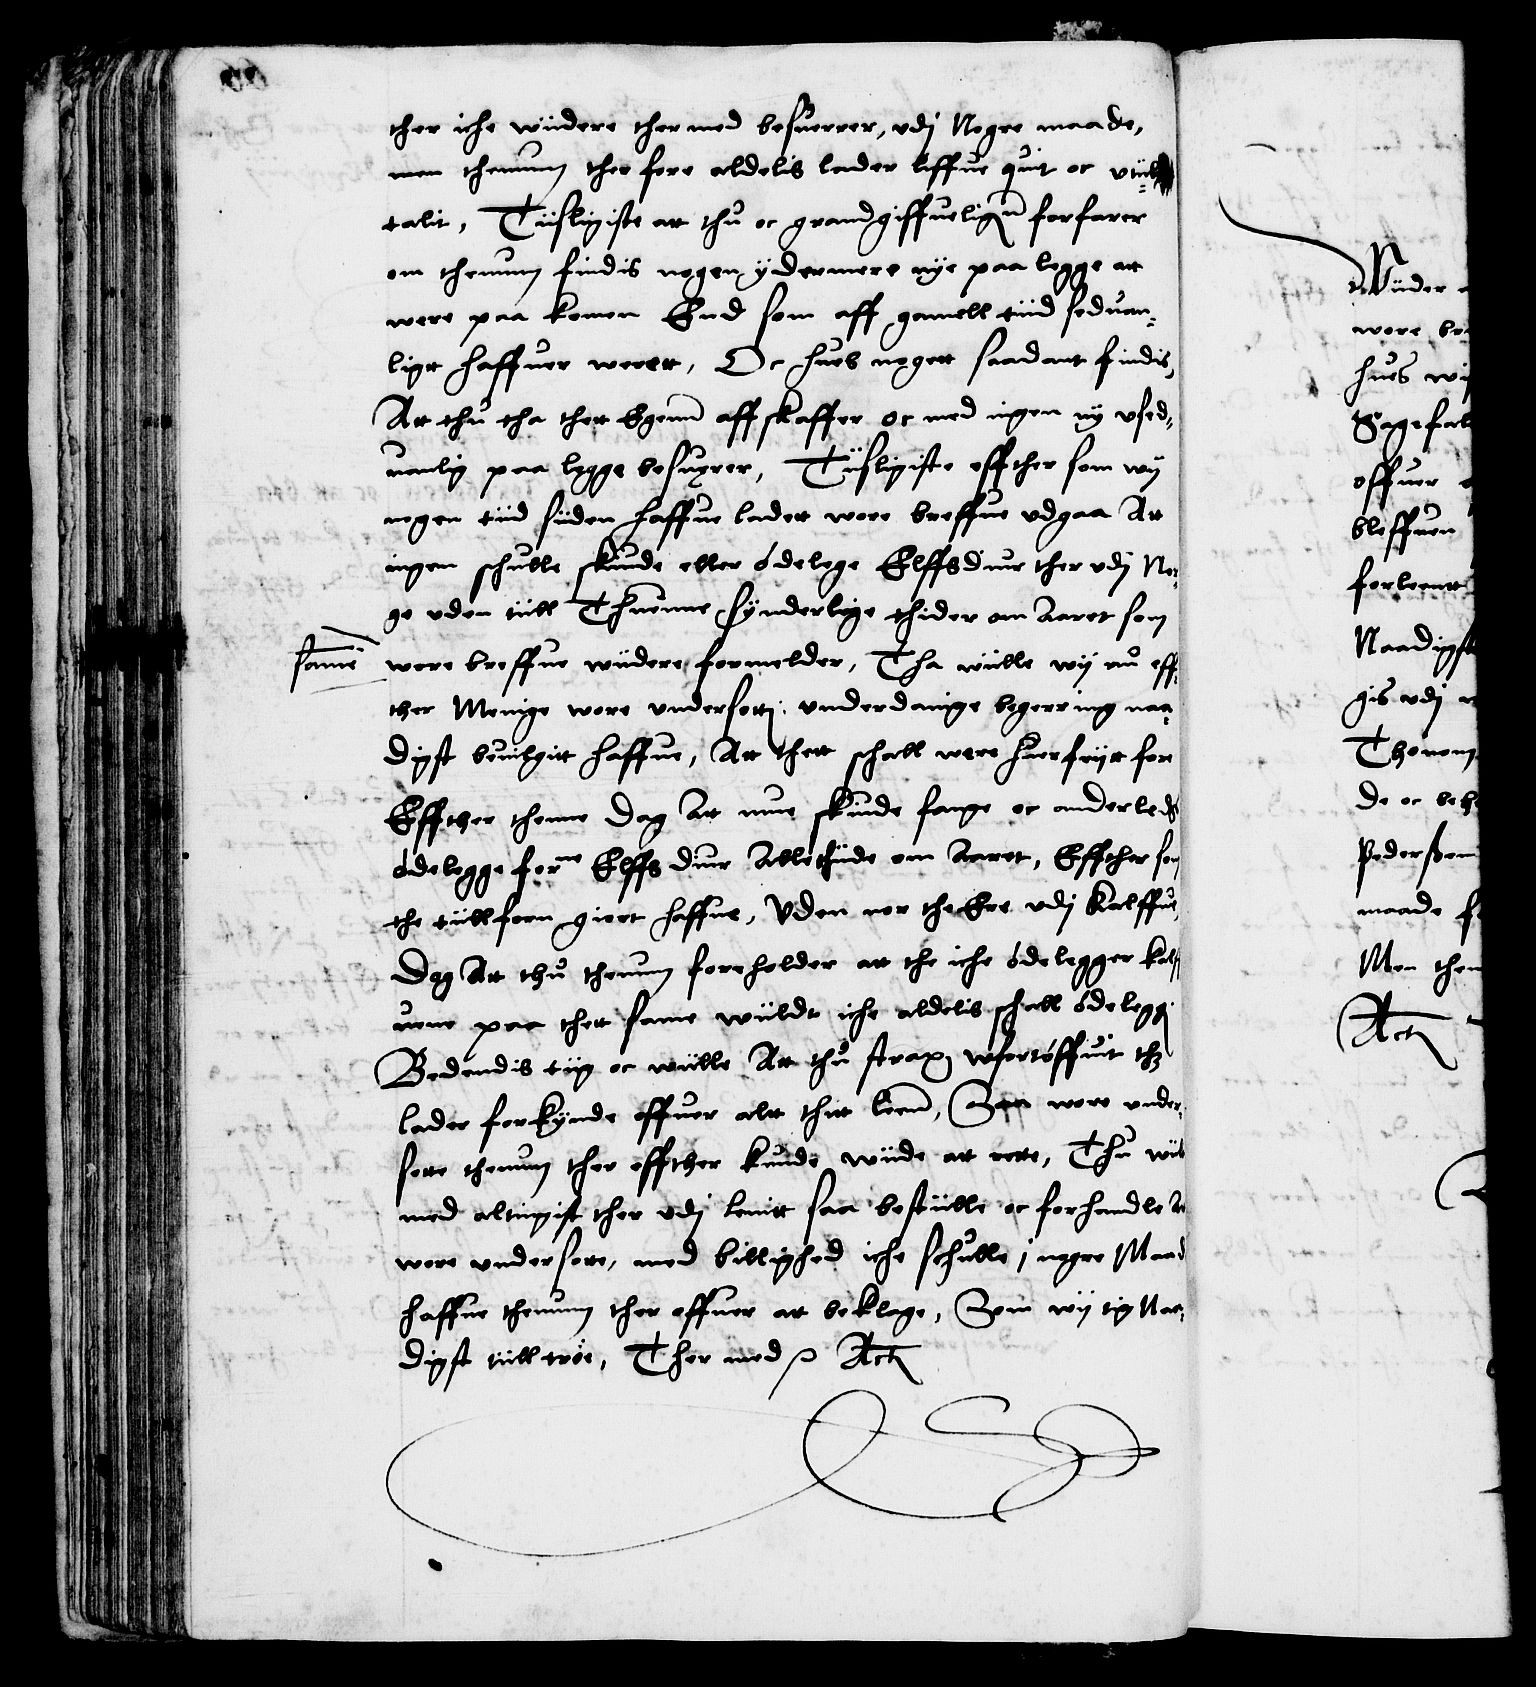 ther iche widere ther med besuerrer, vdj Nogre maade,
men thennum ther fore aldelis lader bliffue quit oc vtil¬
talit, Tiisligiste att thu oc grandgiffueligen forfarer
om thennum findis nogen ÿdermere nÿe paa legge att
were paa komen End som aff gamell tiid seduan¬
ligt haffuer werett, Oc hues nogett saadant findis,
Att thu tha thett Egenn aff skaffer oc med ingen nÿ vsed¬
uanlig paa legge besuerer, Tiisligiste effther som wÿ
nogen tiid siiden haffue ladet wore breffue vdgaa Att
ingen schulle skiude eller ódelege Elffsdiur ther vdj Nor¬
ge vden till Thuenne sÿnderlige thider om Aaret som
samme
wore breffue widere formelder, Tha wille wÿ nu eff¬
ther Menige wore undersotters underdanige begerring naa¬
digst beuilgitt haffue, Att thett schall were huer friitt fore
Effther thenne Dag Att mue skiude fange oc anderleds
ódelegge forne Elffs diur Alletiide om Aaret, Effther som
the tillforn giort haffue, Vden nor the Ere vdj kalffue,
Dog Att thu thennum foreholder att the iche ódelegger kalff
uene paa thett samme wildt iche aldelis schall ódeleggis
Bedendis tig oc wille Att thu strax wfortóffuit thz
lader forkÿnde offuer alt thitt leenn, Saa wore under¬
sotte thennum ther effther kunde wiide att rette, Thu wil
med altingist ther vdj lenitt saa bestille oc forhandle At
wore undersotte, med billighed iche schulle i nogre Maade
haffue thennum ther offuer att beklage, Som wÿ tig Naa¬
digst till troe, Ther med Actum
Wiider
wore
hues wi
Sagefal
offuer
bleffuen
forleent
Naadigst
gis vdj
Thonom
de oc beh
Pedersøn
maade
Men then
Actum